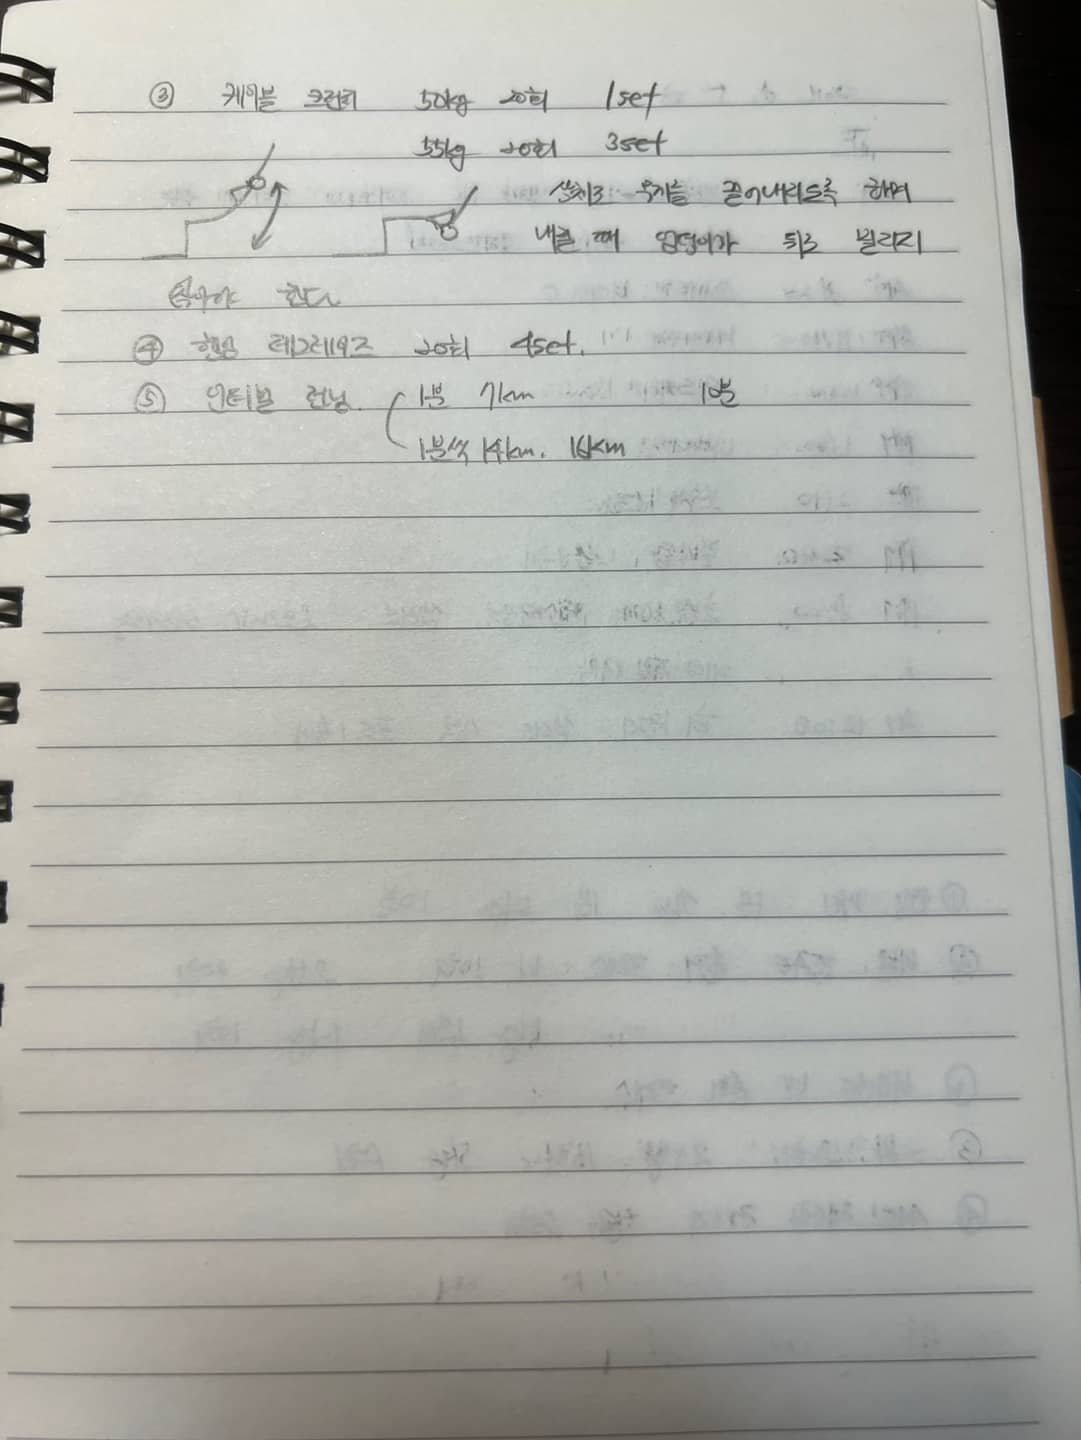 ③ 케이블 크런치 50kg 20회 1set
55kg 20회 3set
상체로 무게를 끌어내리도록 하며
내릴 때 엉덩이가 뒤로 밀리지
않아야 한다
④ 행잉 레그레이즈 20회 4set.
⑤ 인터벌 런닝. 1분 7km 10분
1분씩 14km. 16km